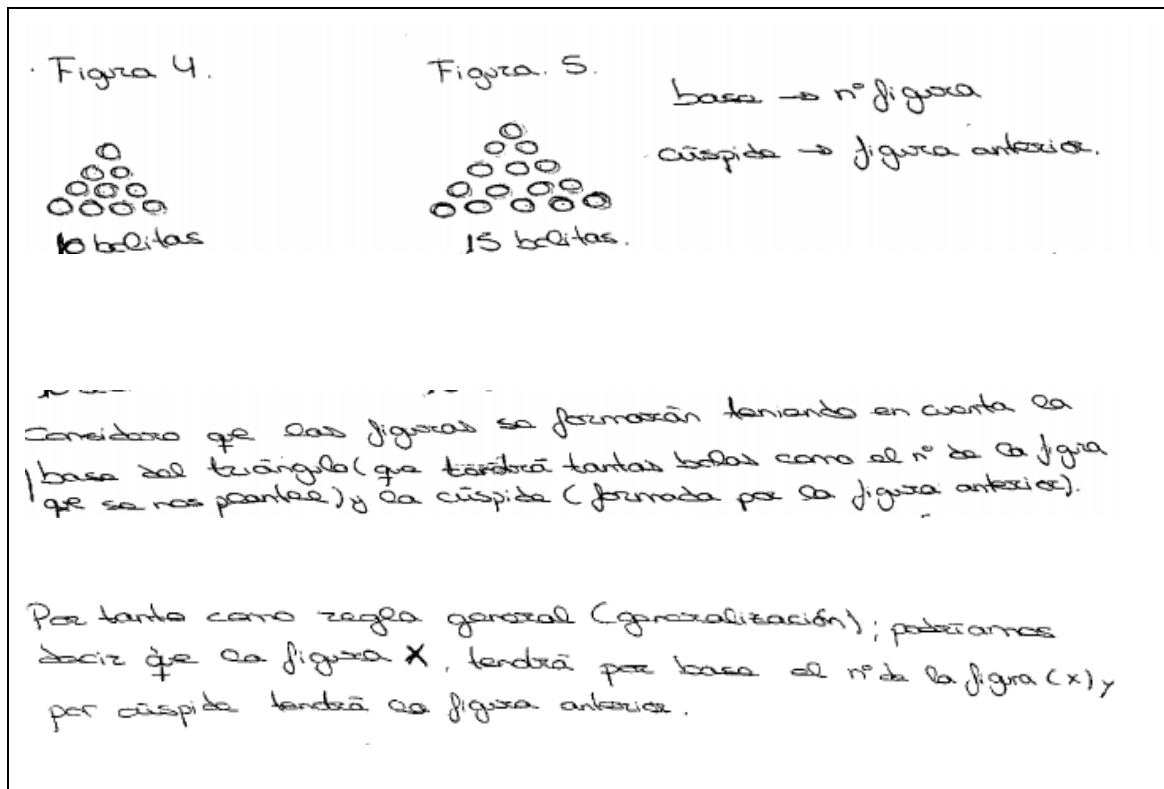 · Figura 4.
Figura. 5.
base → nº figura
cúspide → figura anterior.
10 bolitas
15 bolitas.
Considero que las figuras se formarán teniendo en cuenta la
base del triángulo (que tendrá tantas bolas como el nº de la figra
que se nos plantee) y la cúspide (formada por la figura anterior).
Por tanto como regla general (generalización); podríamos
decir que la figura X, tendrá por base el nº de la figra (x) y
por cúspide tendrá la figura anterior.